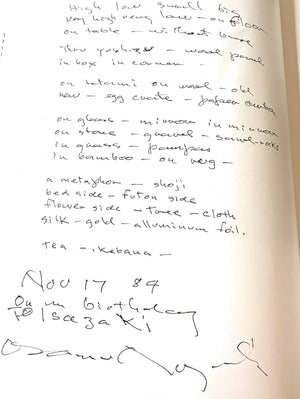 High low small big
very high very low - on floor
on table - without base
on tatami on wood - old
new -
on glass - mirror in mirror
on stone - gravel - sand - rocks
in grass - pampas
in bamboo - on
a metaphor - shoji
bed side - futon side
flower side - tree - cloth
silk - gold - alluminum foil.
Tea - ikebana -
Nov 17 84
On m birthday
to Isazaki